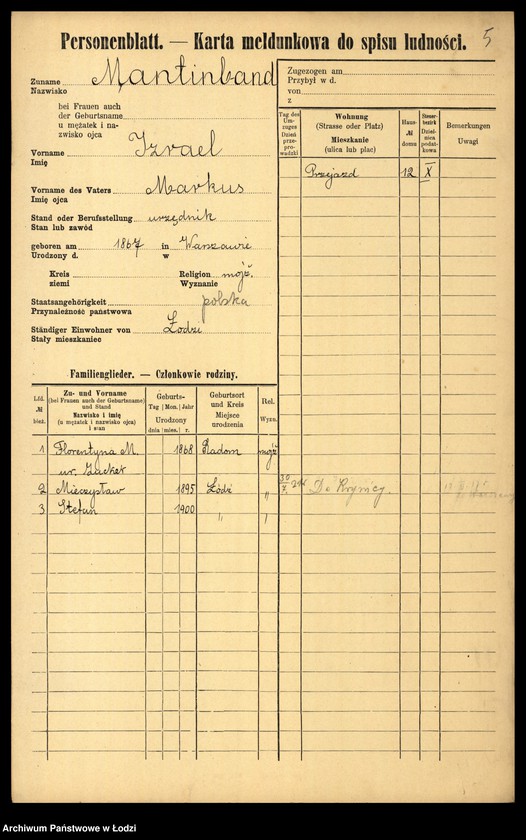 Personenblatt. — Karta meldunkowa do spisu ludności.
5
Zuname Mantinband
Nazwisko
bei Frauen auch
der Geburtsname
u mężatek i na-
zwisko ojca
Vorname Izrael
Imię
Vorname des Vaters Markus
Imię ojca
Stand oder Berufsstellung urzędnik
Stan lub zawód
geboren am 1867 in Warszawie
Urodzony d. w
Kreis Religion mojż.
ziemi Wyznanie
Staatsangehörigkeit polska
Przynależność państwowa
Ständiger Einwohner von Łodzi
Stały mieszkaniec
Zugezogen am
Przybył w d.
von
z
Tag des Um-zuges Dzień prze-prowadzki
Wohnung (Strasse oder Platz) Mieszkanie (ulica lub plac)
Haus- № domu
Steuer-bezirk Dziel-nica podat-kowa
Bemerkungen Uwagi
Przejazd 12 X
Familienglieder. — Członkowie rodziny.
Lfd. № bież.
Zu- und Vorname (bei Frauen auch der Geburtsname) und Stand Nazwisko i imię (u mężatek i nazwisko ojca) i stan
Geburts- Tag Mon. Jahr Urodzony dnia mies. r.
Geburtsort und Kreis Miejsce urodzenia
Rel. Wyzn.
1 Florentyna M. 1868 Radom mojż
ur.
2 Mieczysław 1895 Łódź "
30/7 Do Krynicy.
3 Stefan 1900 " "
Archiwum Państwowe w Łodzi